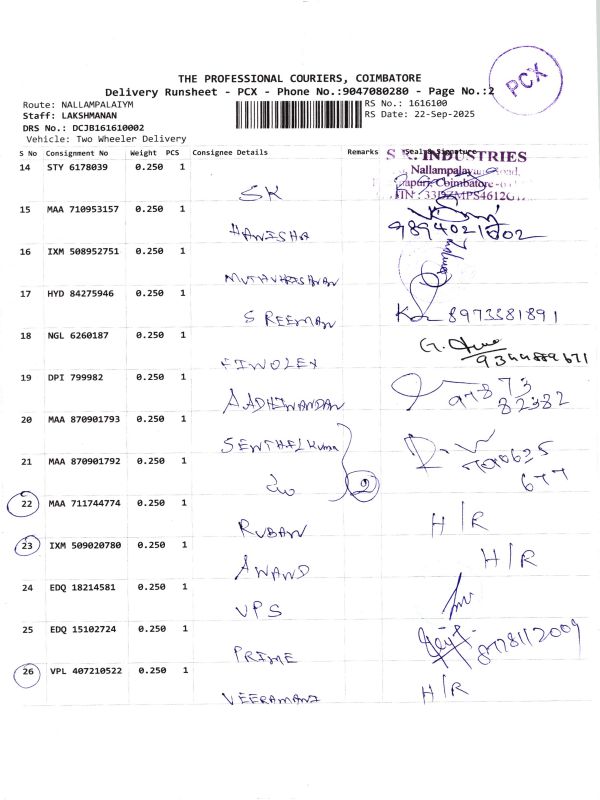 THE PROFESSIONAL COURIERS, COIMBATORE
Delivery Runsheet - PCX - Phone No.:9047080280 - Page No.:2
PCX
Route: NALLAMPALAIYM
RS No.: 1616100
Staff: LAKSHMANAN
RS Date: 22-Sep-2025
DRS No.: DCJB161610002
Vehicle: Two Wheeler Delivery
S No Consignment No Weight PCS Consignee Details Remarks Seal & Signature
14 STY 6178039 0.250 1
S K. INDUSTRIES
Nallampalayam Road,
Coimbatore
SK
15 MAA 710953157 0.250 1
HANISHA
9894021002
16 IXM 508952751 0.250 1
17 HYD 84275946 0.250 1
S REEMAN
8973381891
18 NGL 6260187 0.250 1
FINOLEX
9344889671
19 DPI 799982 0.250 1
AADHINANDAN
97873
82382
20 MAA 870901793 0.250 1
SENTHILKUMA
21 MAA 870901792 0.250 1
do
2
677
22 MAA 711744774 0.250 1
RUBAN
H/R
23 IXM 509020780 0.250 1
ANAND
H/R
24 EDQ 18214581 0.250 1
VPS
25 EDQ 15102724 0.250 1
PRIME
8778112009
26 VPL 407210522 0.250 1
VEERAMANI
H/R